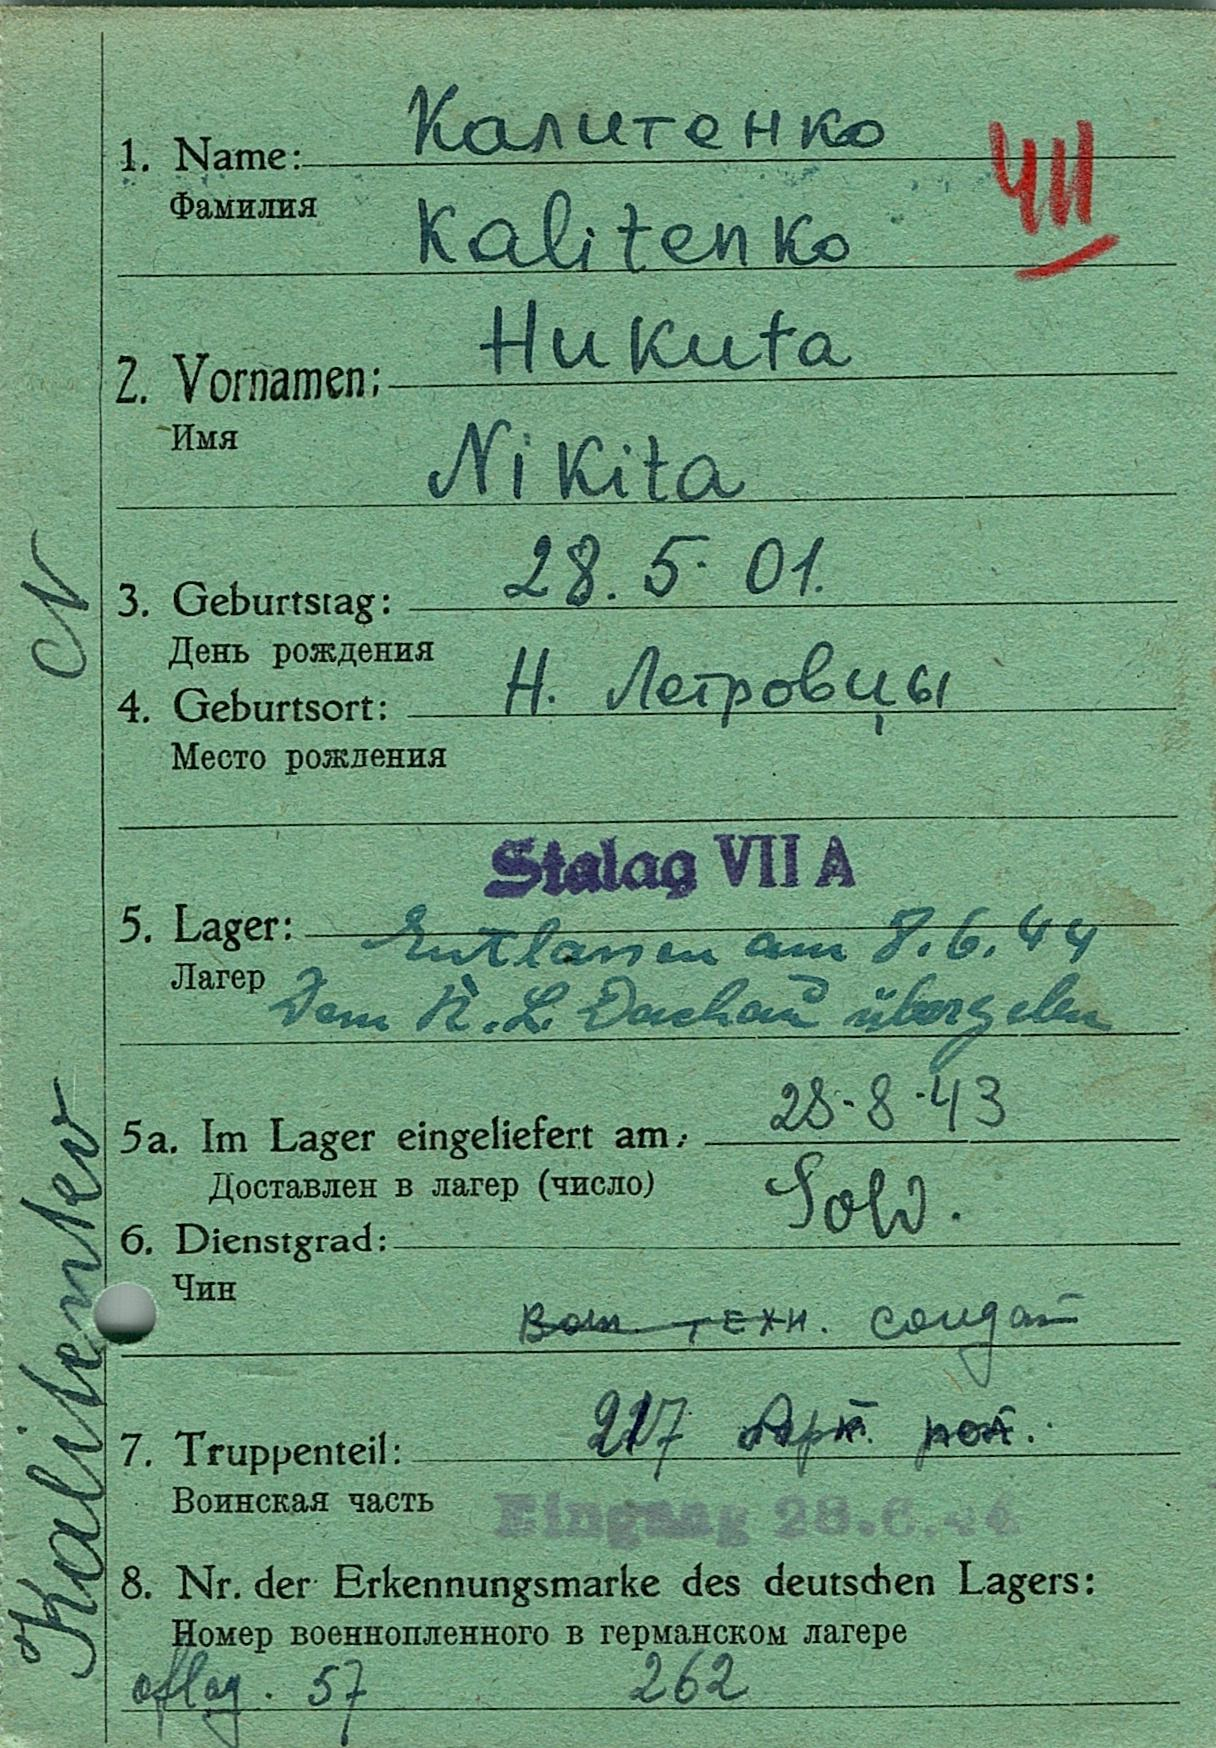 Калитенко
1. Name:
чи
Фамилия
Kalitenko
Никита
2. Vornamen:
Имя
Nikita
28. 5. 01.
3. Geburtstag:
День рождения
Н. Петровцы
4. Geburtsort:
Место рождения
Stalag VII A
5. Lager:
Entlassen am 8.6.44
Лагер
Dem K.L. Dachau übergeben
28-8-43
5a. Im Lager eingeliefert am:
Доставлен в лагер (число)
Sold.
6. Dienstgrad:
Чин
техн. солдат
217
7. Truppenteil:
Воинская часть
Eingang 28.6.44
8. Nr. der Erkennungsmarke des deutschen Lagers:
Номер военнопленного в германском лагере
oflag. 57 262
Kalitenko N